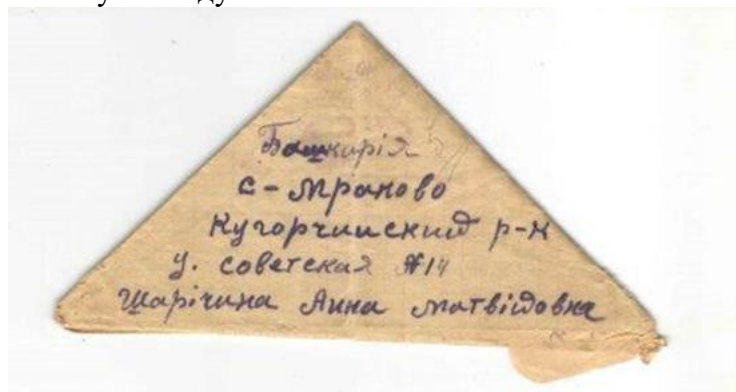 Башкирія
с-Мраково
Кугорчинский р-н
у. советская №14
Шарічина Анна Матвійовна